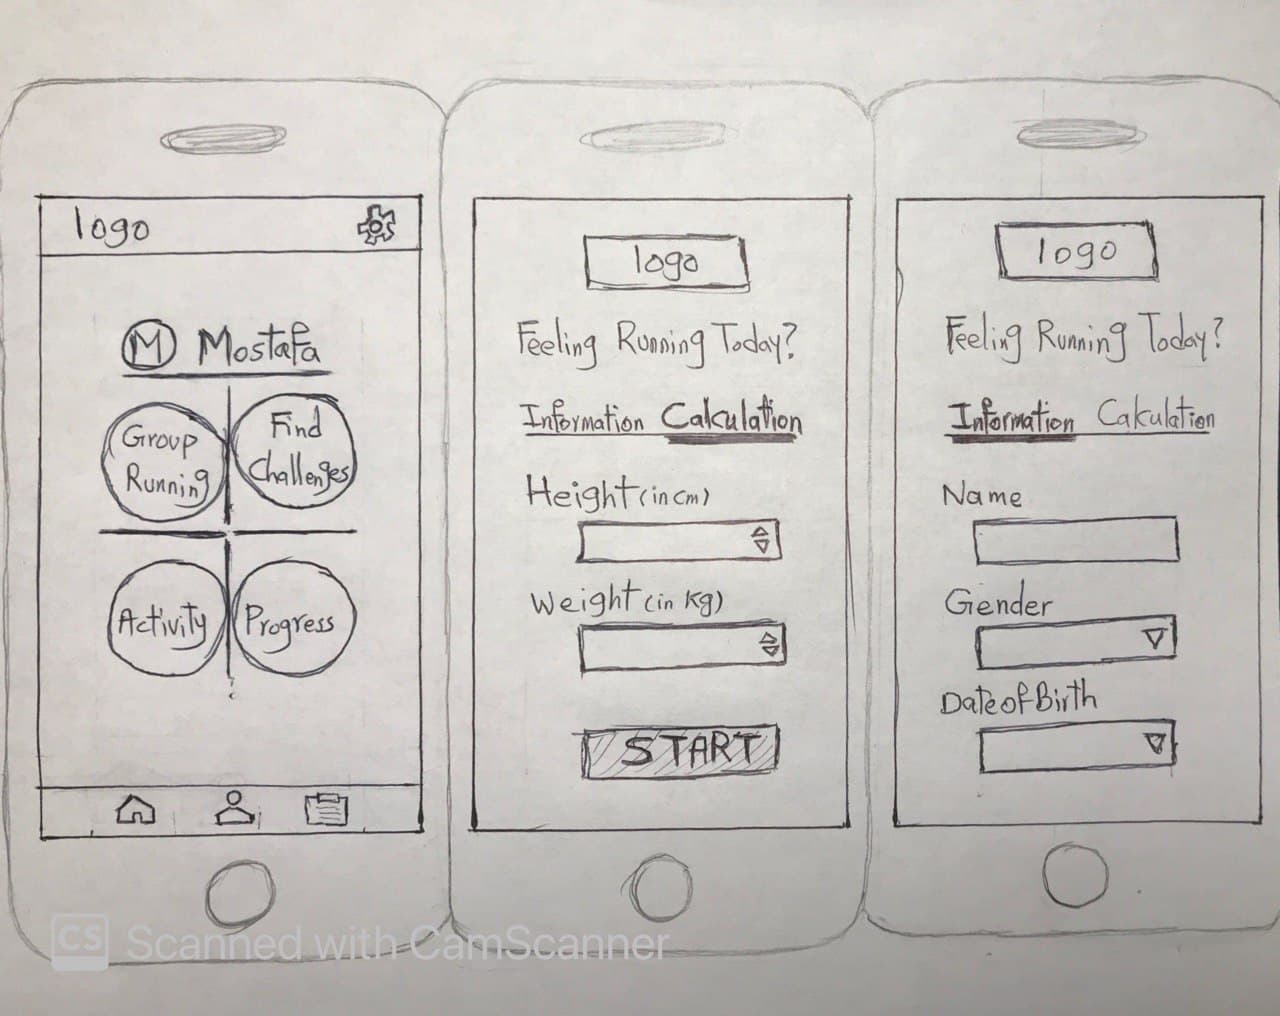 logo
M Mostafa
Group
Running
Find
Challenges
Activity
Progress
logo
Feeling Running Today?
Information Calculation
Height (in cm)
Weight (in kg)
START
logo
Feeling Running Today?
Information Calculation
Name
Gender
Date of Birth
CS Scanned with CamScanner